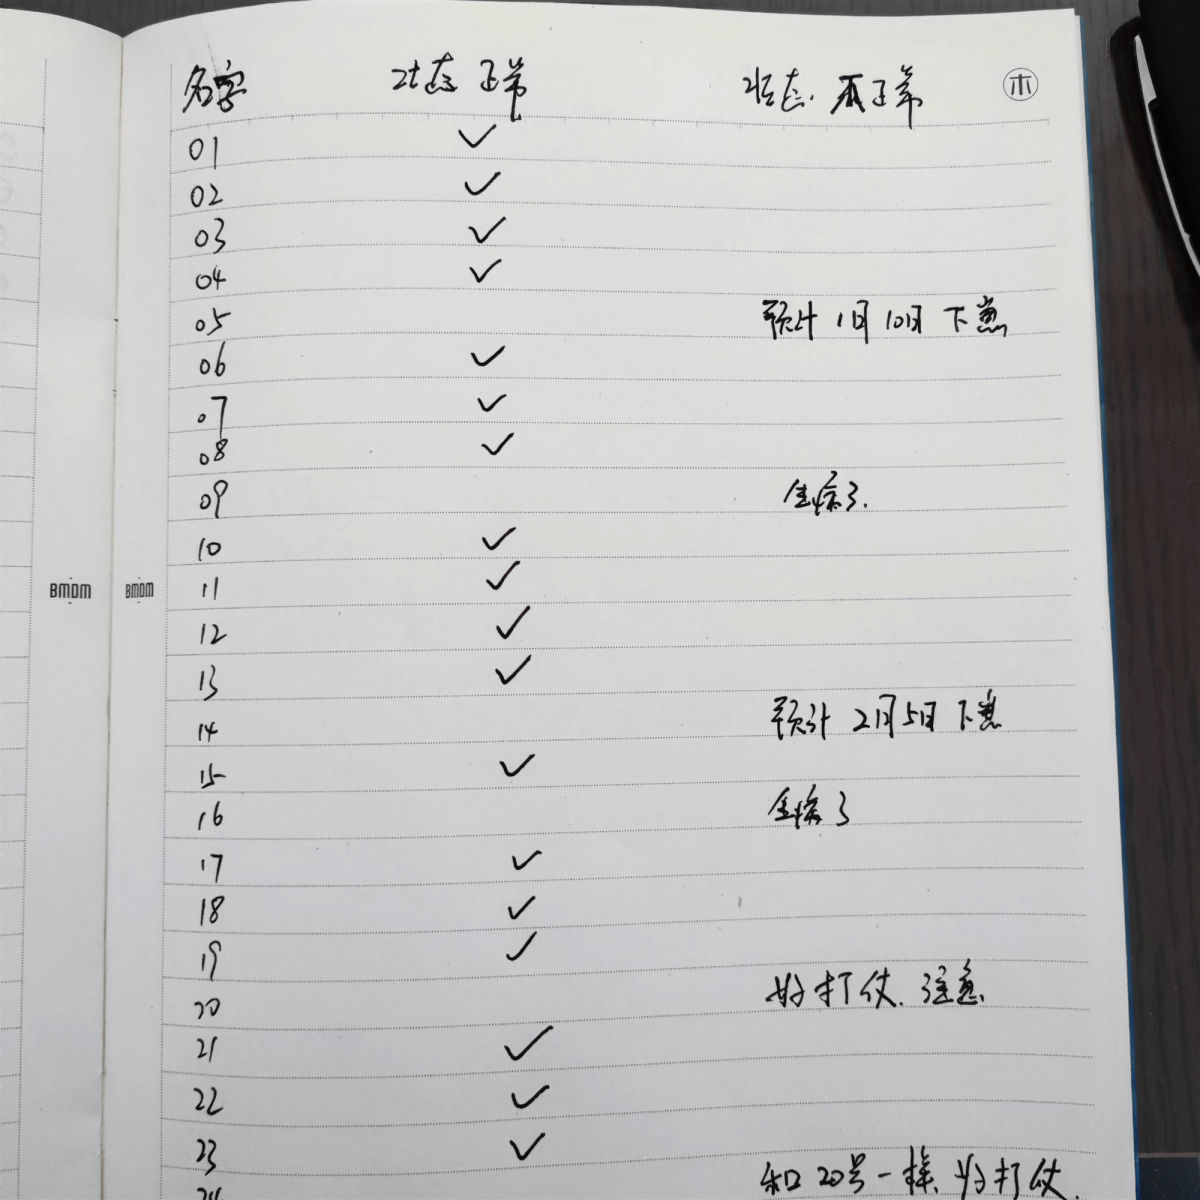 名字 状态 正常 状态 不正常 木
01 ✓
02 ✓
03 ✓
04 ✓
05 预计 1月 10日 下崽
06 ✓
07 ✓
08 ✓
09 生病了.
10 ✓
11 ✓
BMDM BMDM
12 ✓
13 ✓
14 预计 2月5日 下崽
15 ✓
16 生病了
17 ✓
18 ✓
19 ✓
20 好打仗. 注意
21 ✓
22 ✓
23 ✓
24 和20号一样, 好打仗.